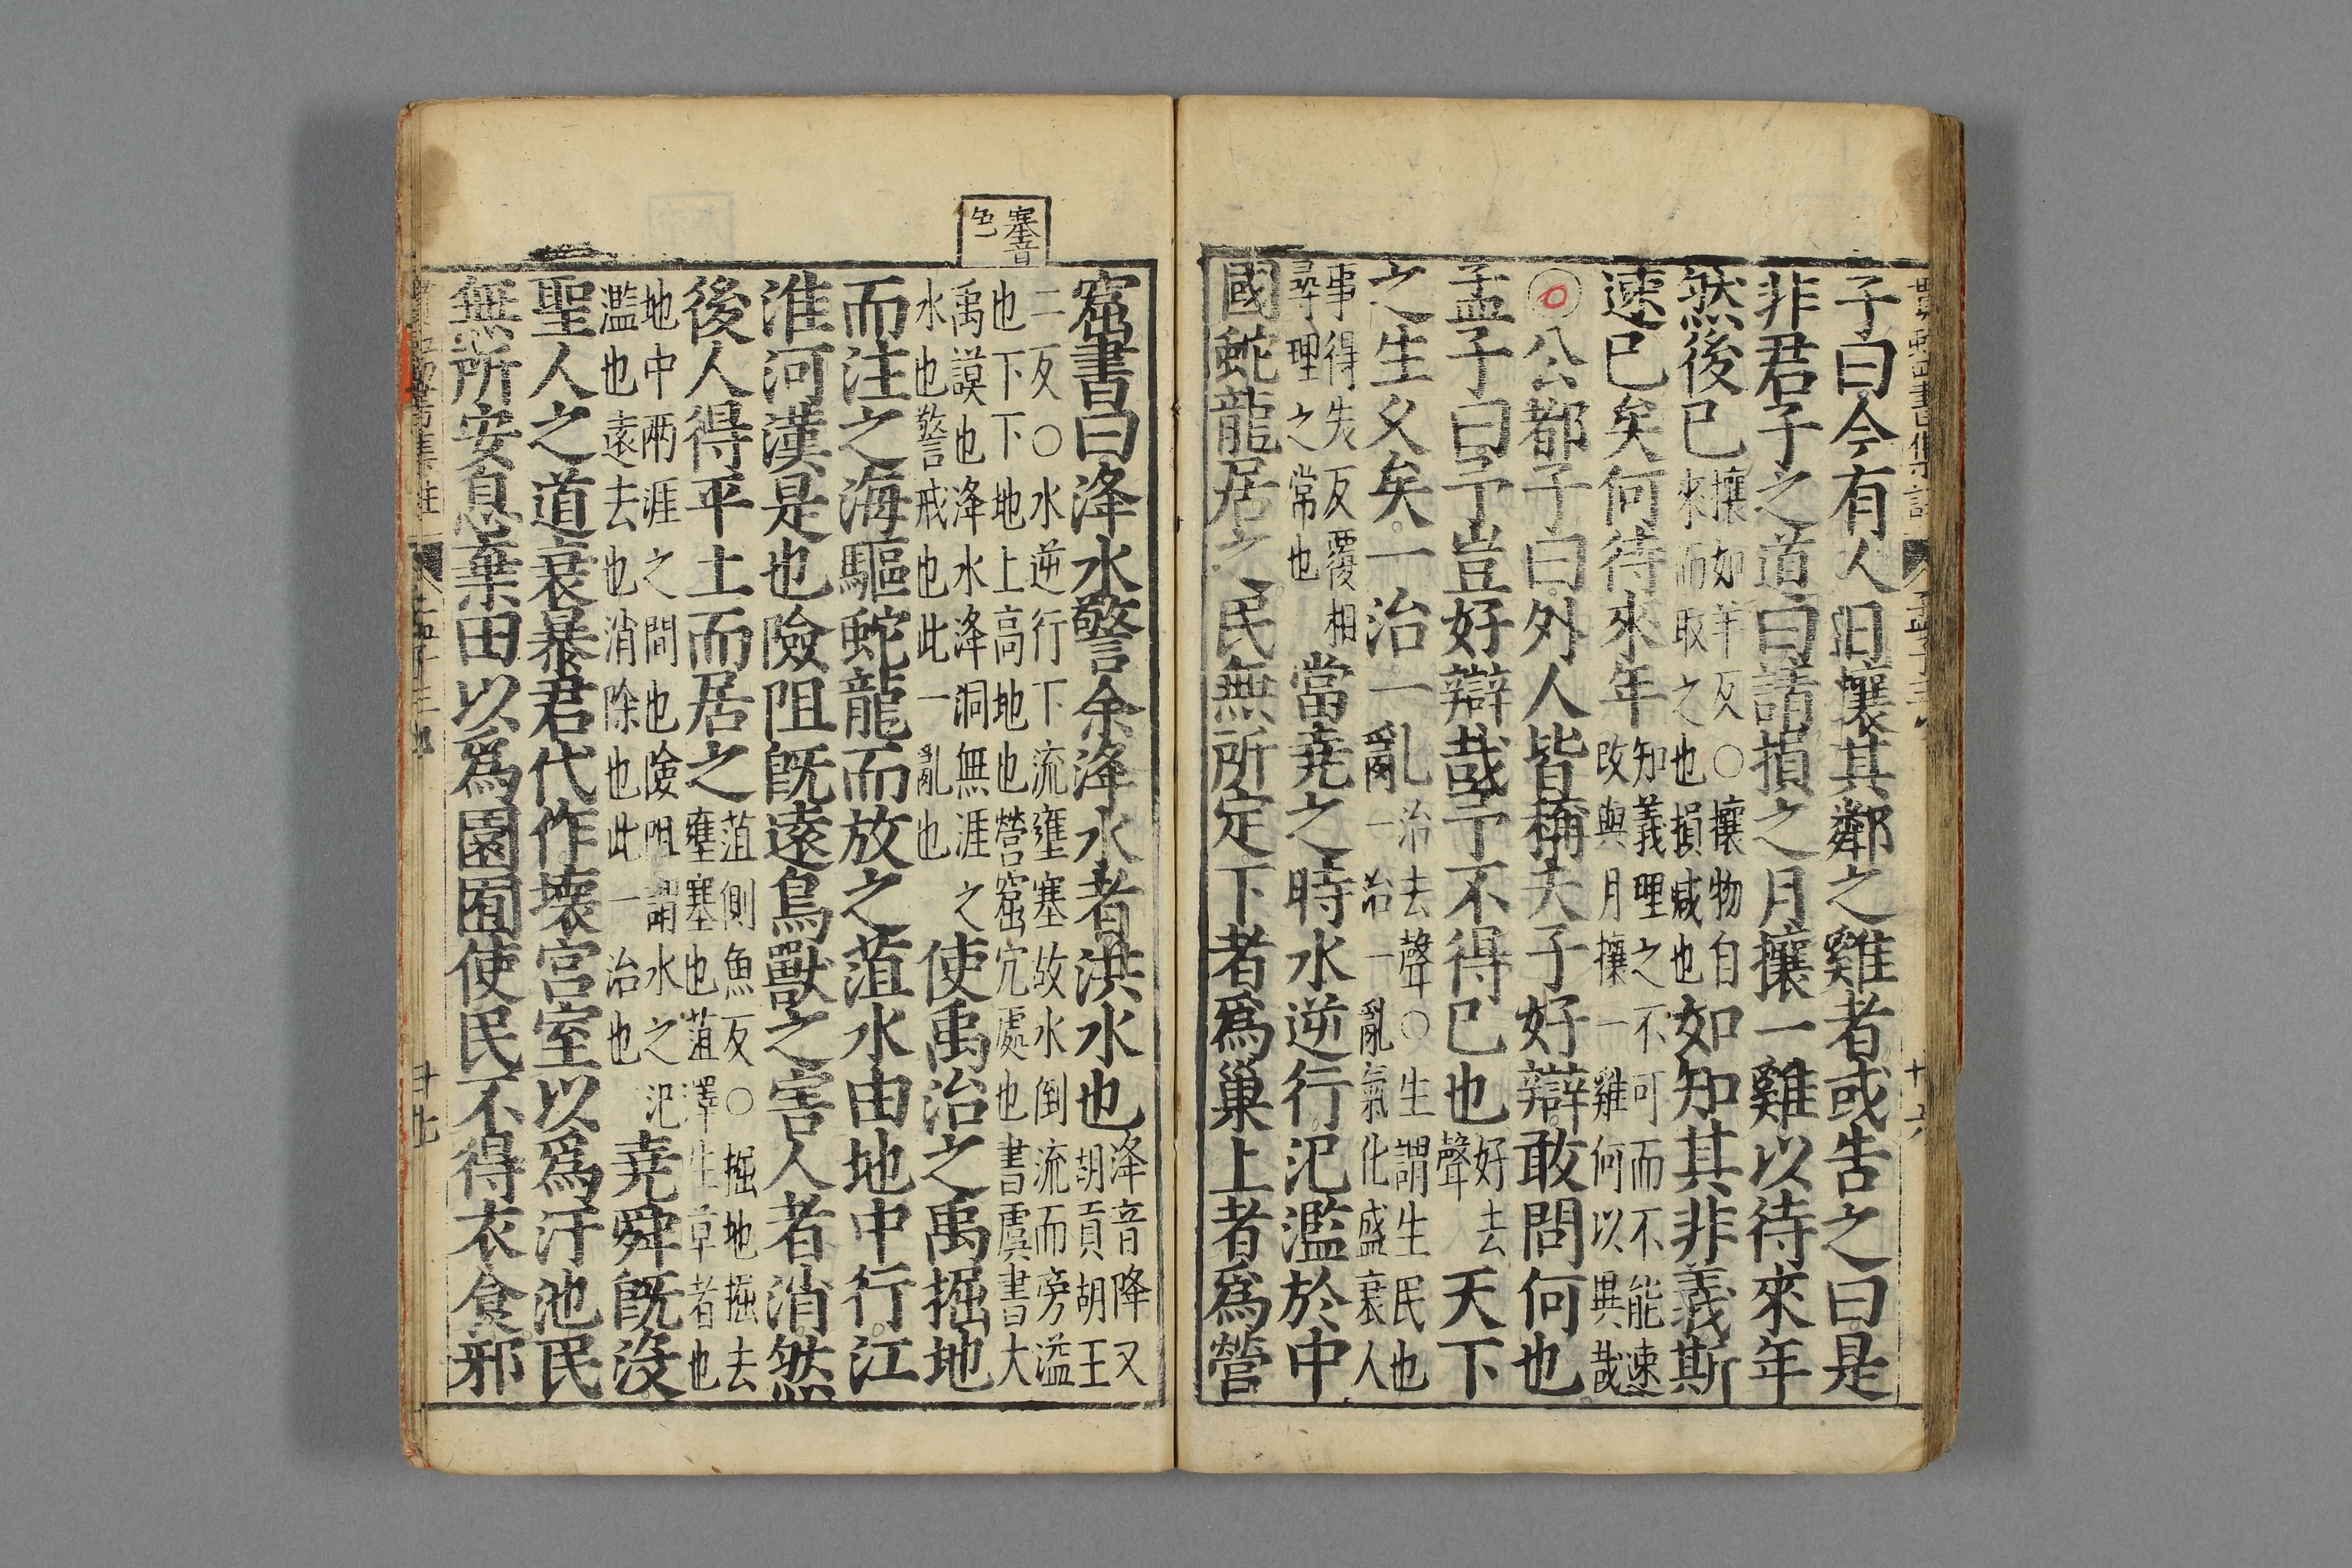 子曰今有人日攘其鄰之雞者或告之曰是
非君子之道曰請損之月攘一雞以待來年
然後已攘如羊反○攘物自
來而取之也損減也如知其非義斯
速已矣何待來年知義理之不可而不能速
改與月攘一雞何以異哉
○公都子曰外人皆稱夫子好辯敢問何也
孟子曰予豈好辯哉予不得已也好去
聲天下
之生久矣一治一亂治去聲○生謂生民也
一亂一治一亂氣化盛衰人
事得失反覆相
尋理之常也當堯之時水逆行氾濫於中
國蛇龍居之民無所定下者爲巢上者爲營
塞音
色
窟書曰洚水警余洚水者洪水也洚音降又
胡貢胡王
二反○水逆行下流壅塞故水倒流而旁溢
也下下地上高地也營窟穴處也書虞書大
禹謨也洚水洚洞無涯之
水也警戒也此一亂也使禹治之禹掘地
而注之海驅蛇龍而放之菹水由地中行江
淮河漢是也險阻旣遠鳥獸之害人者消然
後人得平土而居之菹側魚反○掘地掘去
壅塞也菹澤生草者也
地中兩涯之間也險阻謂水之氾
濫也遠去也消除也此一治也堯舜旣沒
聖人之道衰暴君代作壞宮室以爲汙池民
無所安息棄田以爲園囿使民不得衣食邪